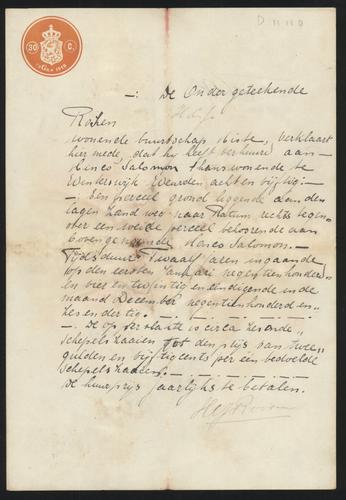 30 C.
D 11 11 0
—: De Ondergeteekende
H. J.
Rohen
wonende buurtschap Miste, verklaart
hier mede, dat hij heeft verhuurd aan—
Salomon thans wonende te
Winterswijk Weurden, acht en vijftig:—
—: Een perceel grond liggende aan den
lagen Zand weg naar Ratum, rechts tegen-
over een weide perceel behorende aan
bovengenoemde Salomon:—
Tijdsduur: Twaalf jaren ingaande
op den eersten Januari negentienhonderd
en vier en twintig en eindigende in de
maand December negentienhonderd en„
zes en dertig. —. —. —. —. —. —.
—. De oppervlakte is circa zes en de„
Schepelszaaien tot den prijs van twee„
gulden en vijftig cents per één bedoelde
Schepelszaaien. —. —. —. —. —.
De huurprijs jaarlijks te betalen.